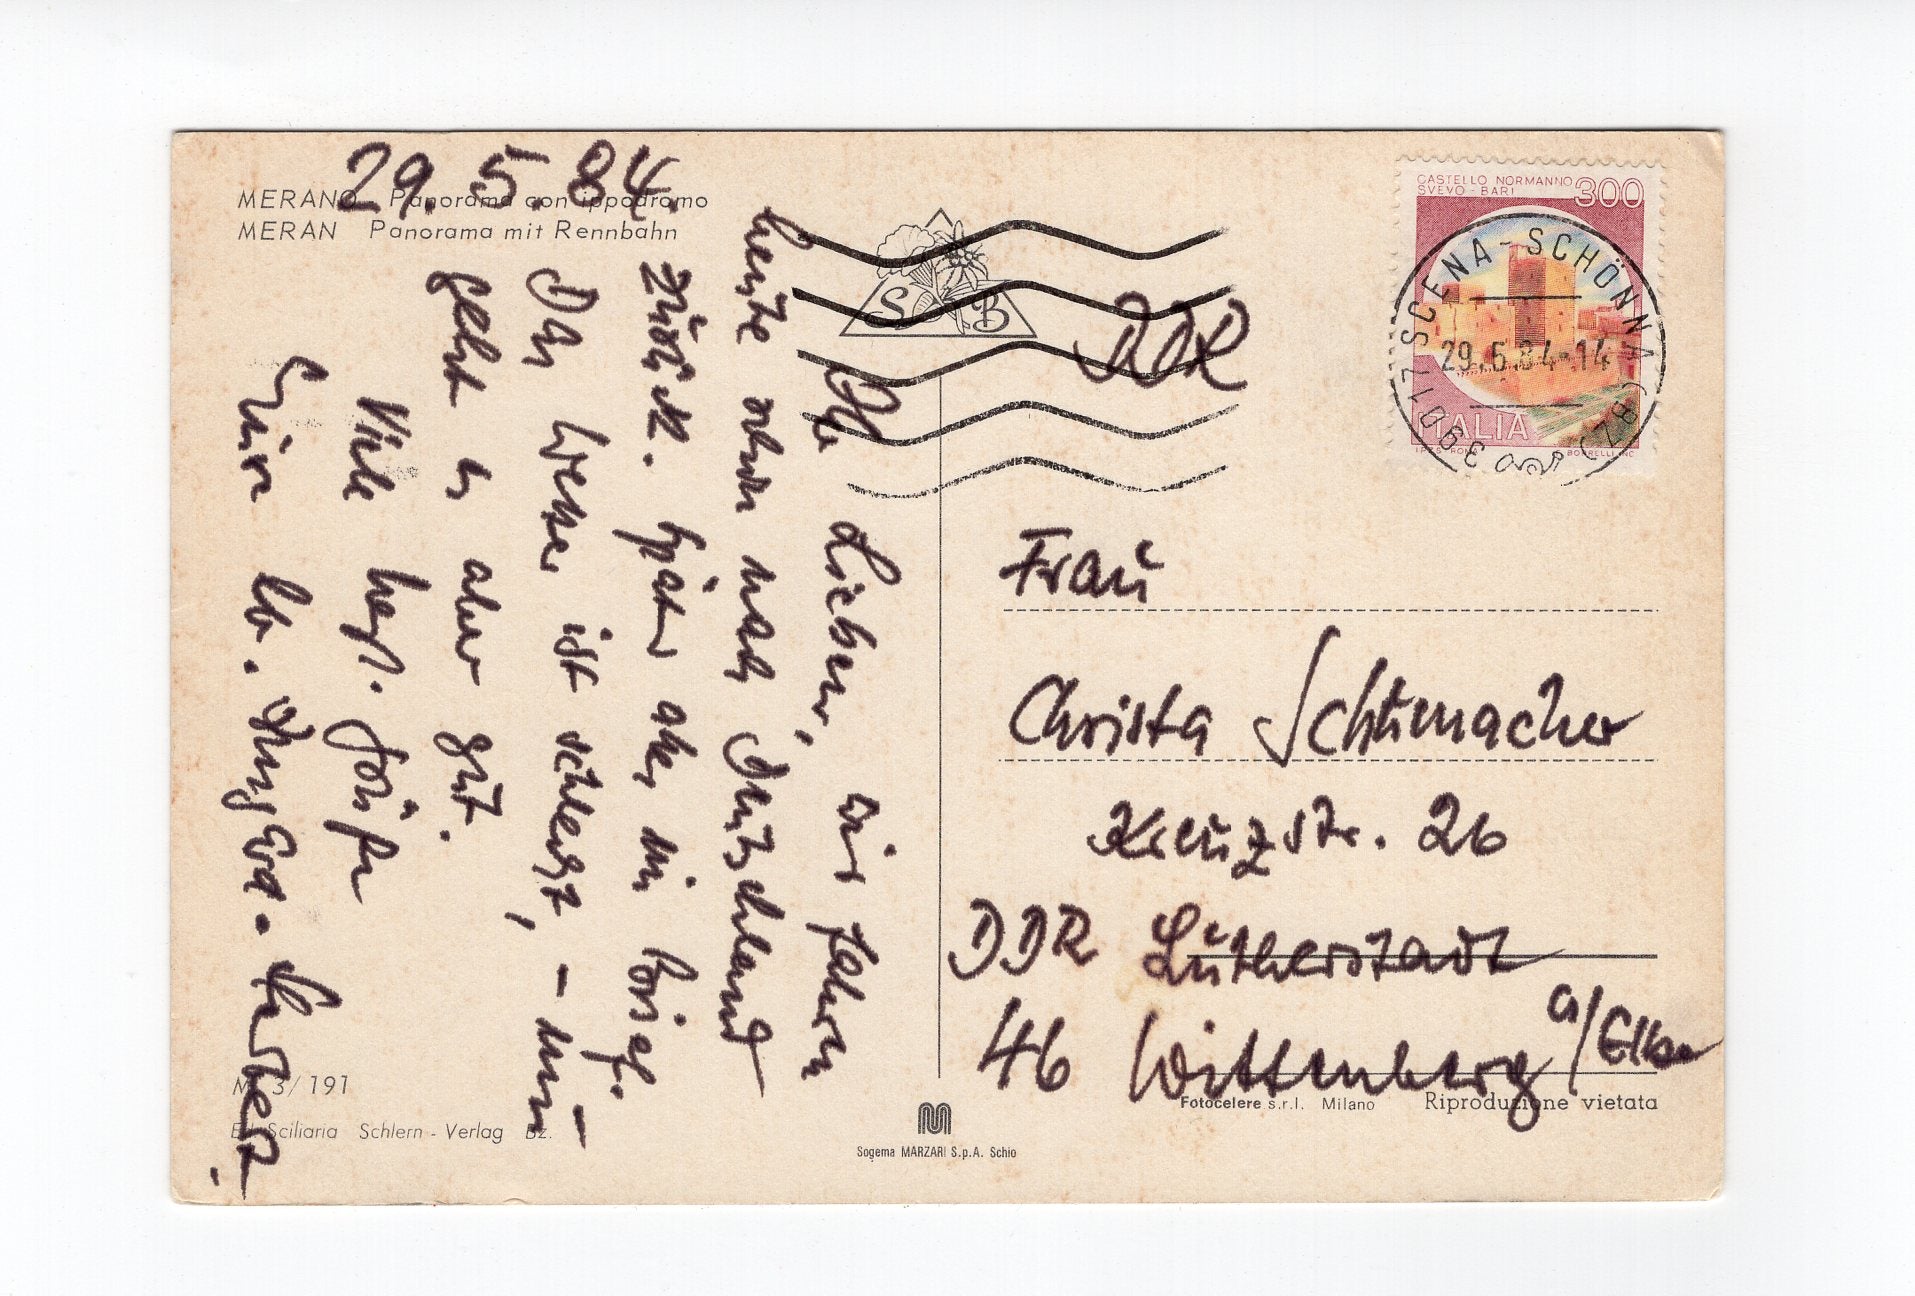 MERANO Panorama con ippodromo
MERAN Panorama mit Rennbahn
29. 5. 84.
Ihr Lieben, wir fahren
heute schon nach Deutschland
zurück. Später aber im Brief.
Das Wetter ist schlecht, – mir –
geht es aber gut.
Viele herzl. Grüße
Eure lb.
S B
DDR
CASTELLO NORMANNO
SVEVO - BARI 300
ITALIA
39017 SCENA - SCHÖNNA (BZ)
29.5.84-14
Frau
Christa Schumacher
Kreuzstr. 26
DDR Lutherstadt
46 Wittenberg a/Elbe
3/191
Ed. Sciliaria Schlern - Verlag Bz.
Sogema MARZARI S.p.A. Schio
Fotocelere s.r.l. Milano Riproduzione vietata